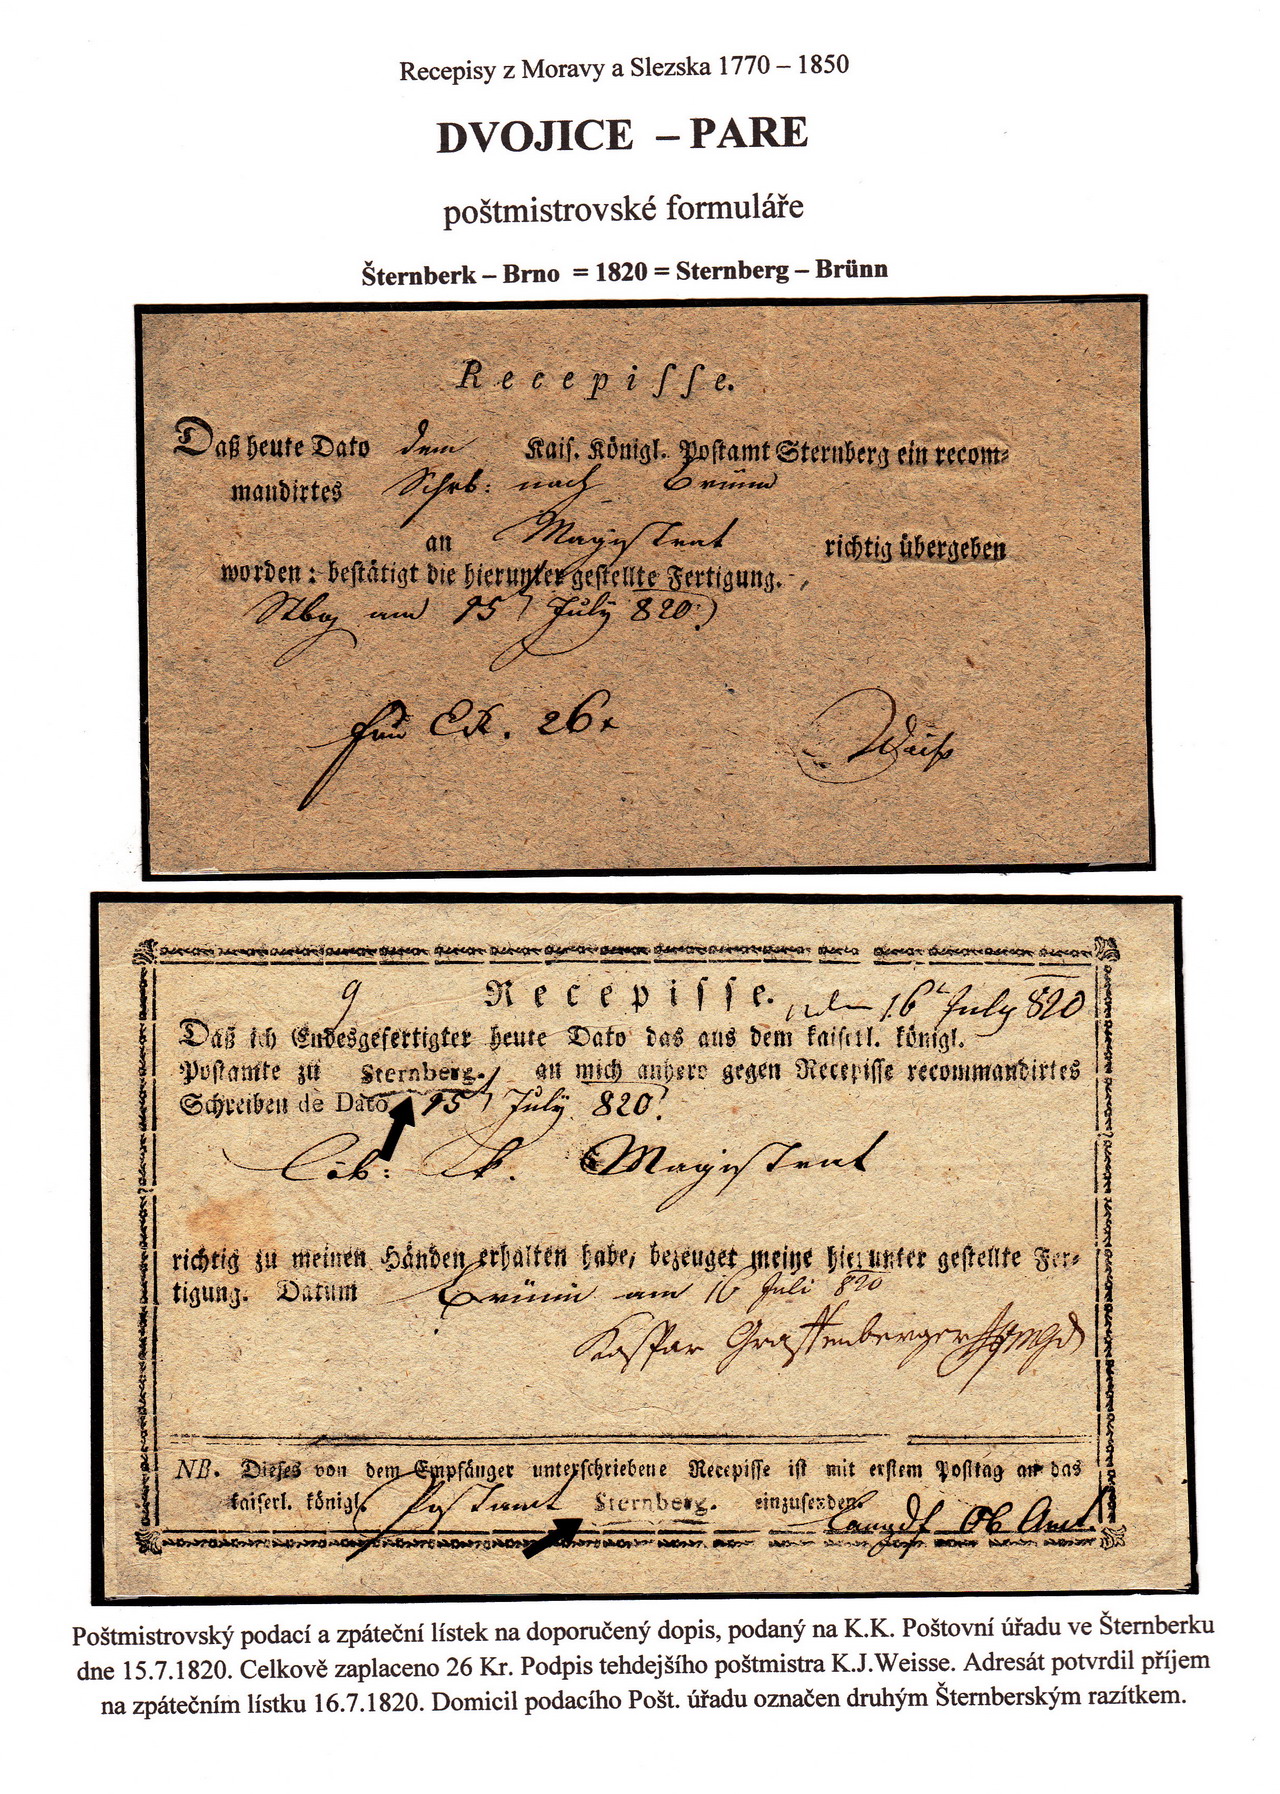 Recepisy z Moravy a Slezska 1770 – 1850
DVOJICE – PARE
poštmistrovské formuláře
Šternberk – Brno = 1820 = Sternberg – Brünn
Recepiſſe.
Daß heute Dato dem Kaiſ. Königl. Poſtamt Sternberg ein recom-
mandirtes Schrb: nach Brünn
an Magistrat richtig übergeben
worden: beſtätigt die hierunter geſtellte Fertigung.
Stbg am 15 July 820
26
Weiss
9 Recepiſſe. den 16 July 820
Daß ich Endesgefertigter heute Dato das aus dem kaiſerl. königl.
Poſtamte zu Sternberg. an mich anhero gegen Recepiſſe recommandirtes
Schreiben de Dato 15 July 820
Löb: Magistrat
richtig zu meinen Händen erhalten habe, bezeuget meine hierunter geſtellte Fer-
tigung. Datum Brünn am 16 Juli 820
Kaspar
NB. Dieſes von dem Empfänger unterſchriebene Recepiſſe iſt mit erſtem Poſttag an das
kaiſerl. königl. Postamt Sternberg. einzuſenden.
Poštmistrovský podací a zpáteční lístek na doporučený dopis, podaný na K.K. Poštovní úřadu ve Šternberku
dne 15.7.1820. Celkově zaplaceno 26 Kr. Podpis tehdejšího poštmistra K.J.Weisse. Adresát potvrdil příjem
na zpátečním lístku 16.7.1820. Domicil podacího Pošt. úřadu označen druhým Šternberským razítkem.